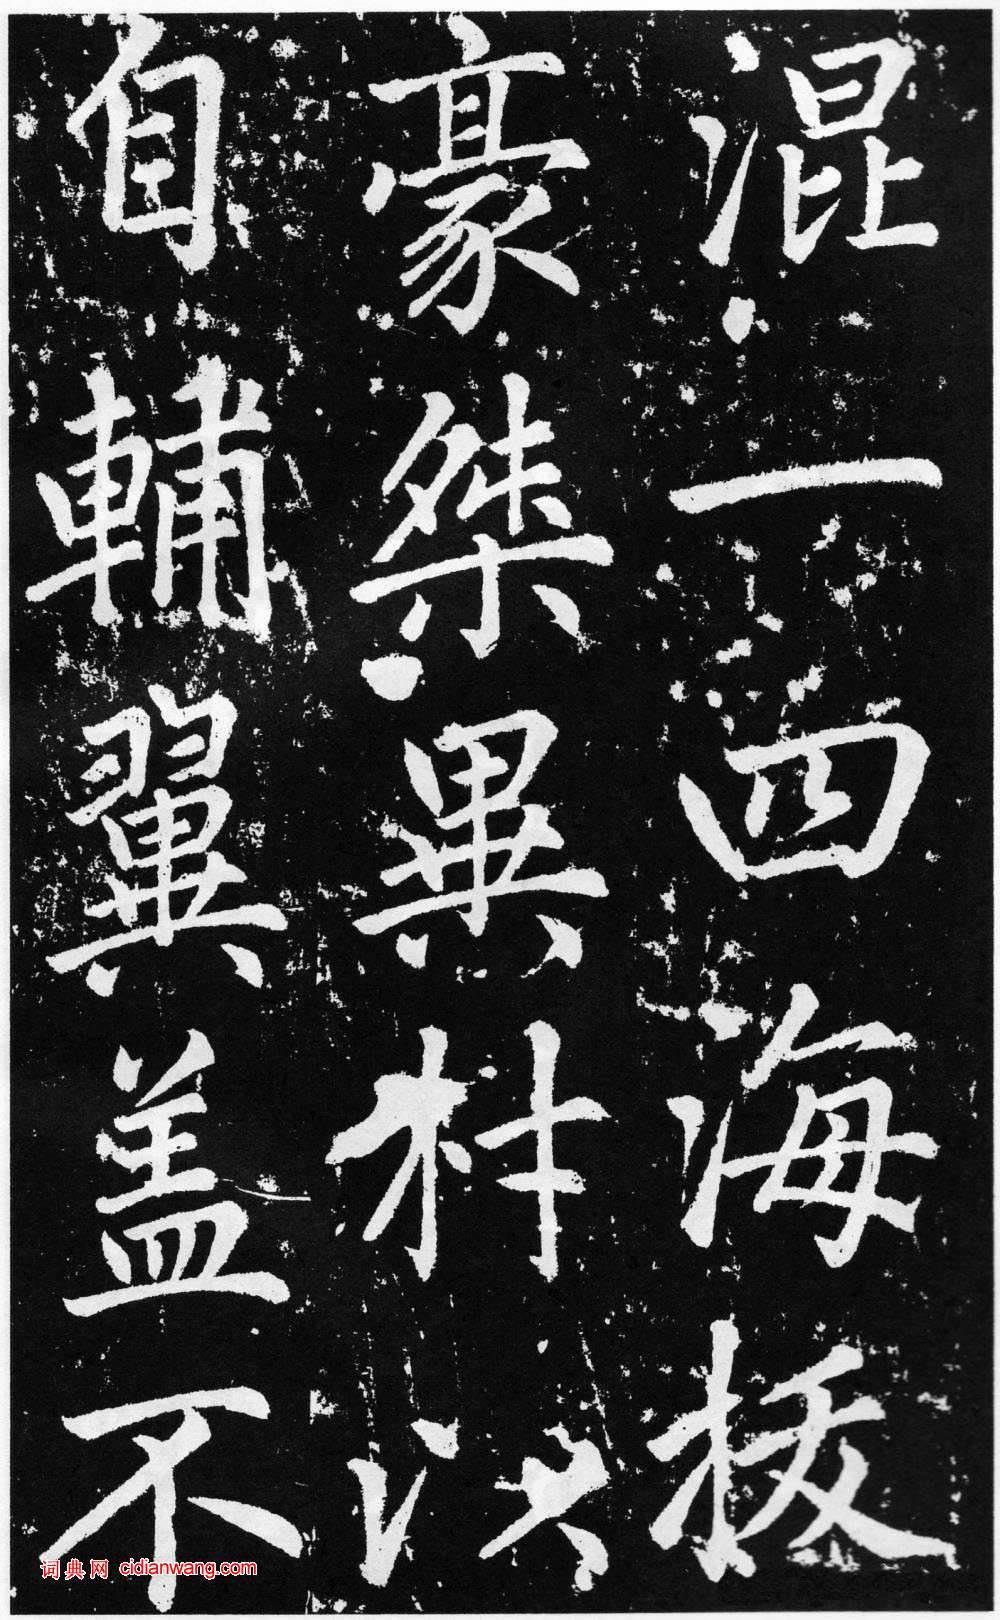 混一四海拔
豪桀異材以
自輔翼盖不
词典网 cidianwang.com